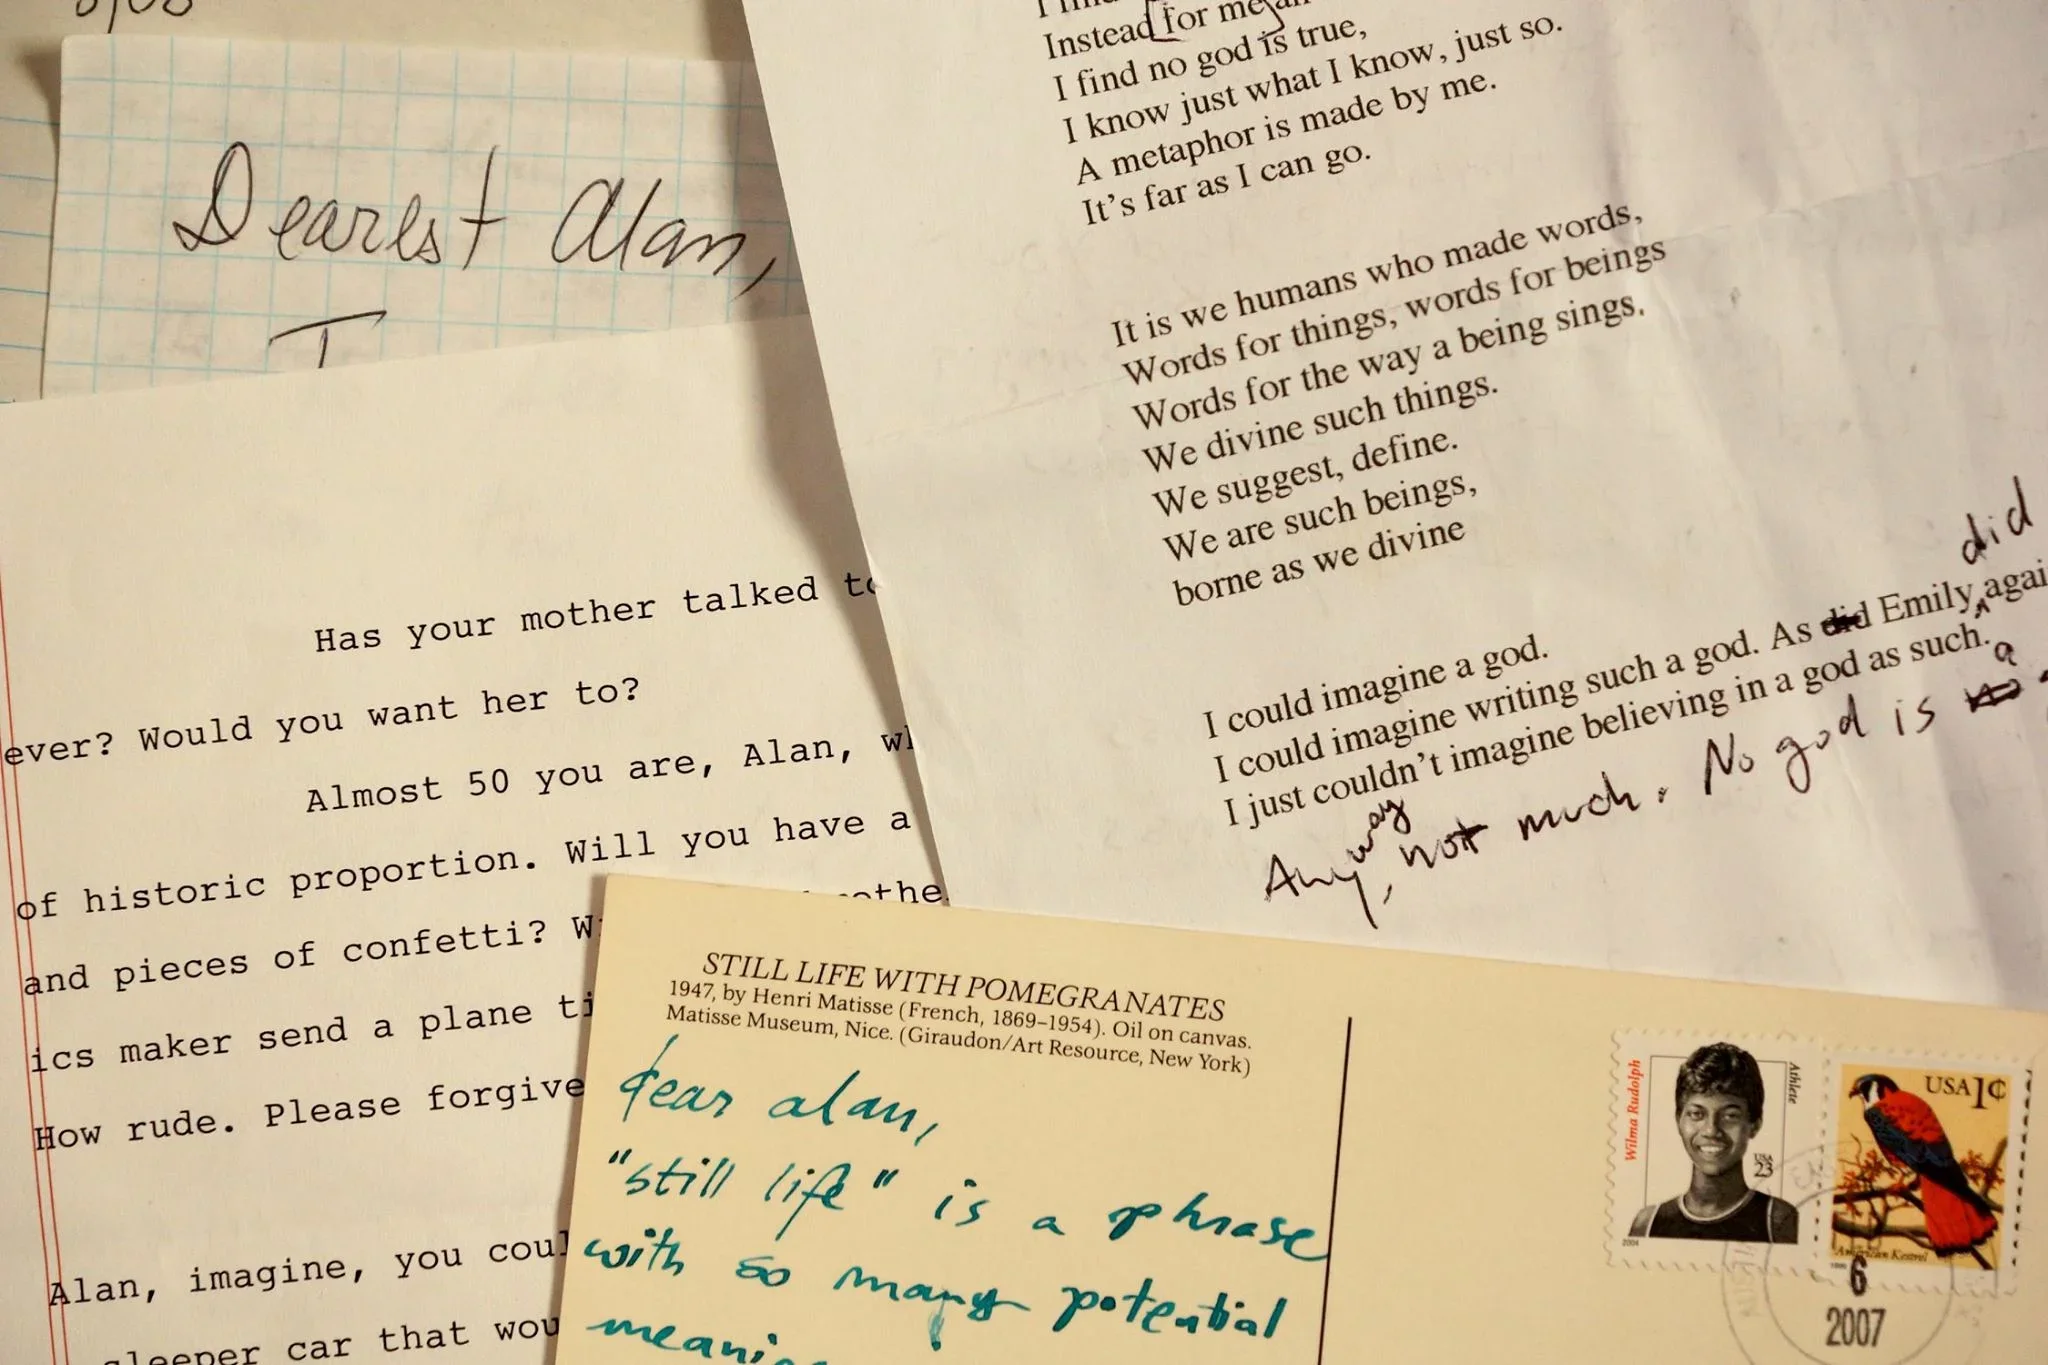 Dearest Alan,
I
Instead for me
I find no god is true,
I know just what I know, just so.
A metaphor is made by me.
It's far as I can go.
It is we humans who made words,
Words for things, words for beings
Words for the way a being sings.
We divine such things.
We suggest, define.
We are such beings,
borne as we divine
I could imagine a god.
I could imagine writing such a god. As did Emily, did
I just couldn't imagine believing in a god as such.
Anyway, not much. No god is a
Has your mother talked
ever? Would you want her to?
Almost 50 you are, Alan,
of historic proportion. Will you have a
and pieces of confetti?
ics maker send a plane
How rude. Please forgive
Alan, imagine, you
sleeper car that
STILL LIFE WITH POMEGRANATES
1947, by Henri Matisse (French, 1869–1954). Oil on canvas.
Matisse Museum, Nice. (Giraudon/Art Resource, New York)
dear alan,
"still life" is a phrase
with so many potential
Wilma Rudolph
Athlete
USA 23
2004
USA 1¢
American Kestrel
6
2007